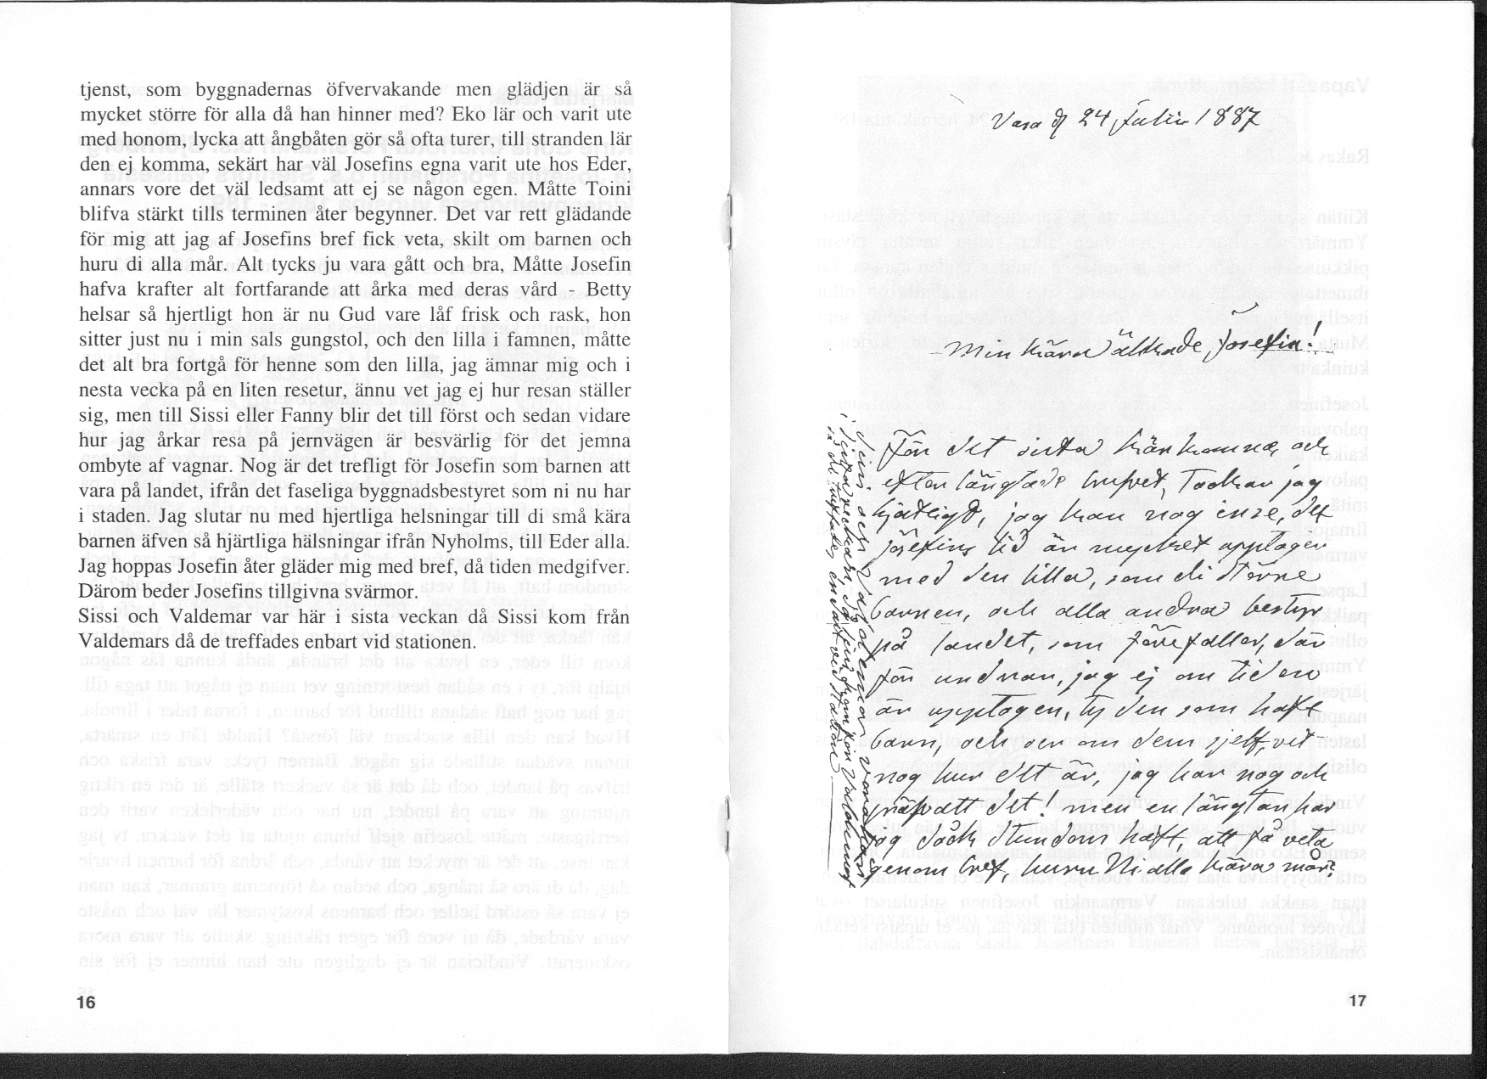 tjenst, som byggnadernas öfvervakande men glädjen är så
mycket större för alla då han hinner med? Eko lär och varit ute
med honom, lycka att ångbåten gör så ofta turer, till stranden lär
den ej komma, sekärt har väl Josefins egna varit ute hos Eder,
annars vore det väl ledsamt att ej se någon egen. Måtte Toini
blifva stärkt tills terminen åter begynner. Det var rett glädande
för mig att jag af Josefins bref fick veta, skilt om barnen och
huru di alla mår. Alt tycks ju vara gått och bra, Måtte Josefin
hafva krafter alt fortfarande att årka med deras vård - Betty
helsar så hjertligt hon är nu Gud vare låf frisk och rask, hon
sitter just nu i min sals gungstol, och den lilla i famnen, måtte
det alt bra fortgå för henne som den lilla, jag ämnar mig och i
nesta vecka på en liten resetur, ännu vet jag ej hur resan ställer
sig, men till Sissi eller Fanny blir det till först och sedan vidare
hur jag årkar resa på jernvägen är besvärlig för det jemna
ombyte af vagnar. Nog är det trefligt för Josefin som barnen att
vara på landet, ifrån det faseliga byggnadsbestyret som ni nu har
i staden. Jag slutar nu med hjertliga helsningar till di små kära
barnen äfven så hjärtliga hälsningar ifrån Nyholms, till Eder alla.
Jag hoppas Josefin åter gläder mig med bref, då tiden medgifver.
Därom beder Josefins tillgivna svärmor.
Sissi och Valdemar var här i sista veckan då Sissi kom från
Valdemars då de treffades enbart vid stationen.
16
Vasa d 24 Julii 1887
Min kära älskade Josefin!
För det sista härkomna och
efterlängtade brefvet, tackar jag
hjertligt, jag kan nog inse, det
Josefins tid är mycket upptagen
med den lilla, som di större
barnen, och alla andra bestyr
på landet, som förefaller, där
för undrar, jag ej om tiden
är upptagen, ty den som haft
barn, och om dem sjelf, vet
nog hur ett är, jag har nog och
pröfvatt det! men en längtan har
jag dock stundom haft, att få veta
genom bref, huru Ni alla kära mår?
Sissi och Valdemar var här i
sista veckan, då Sissi kom från Valdemars
då de treffades enbart vid station
17